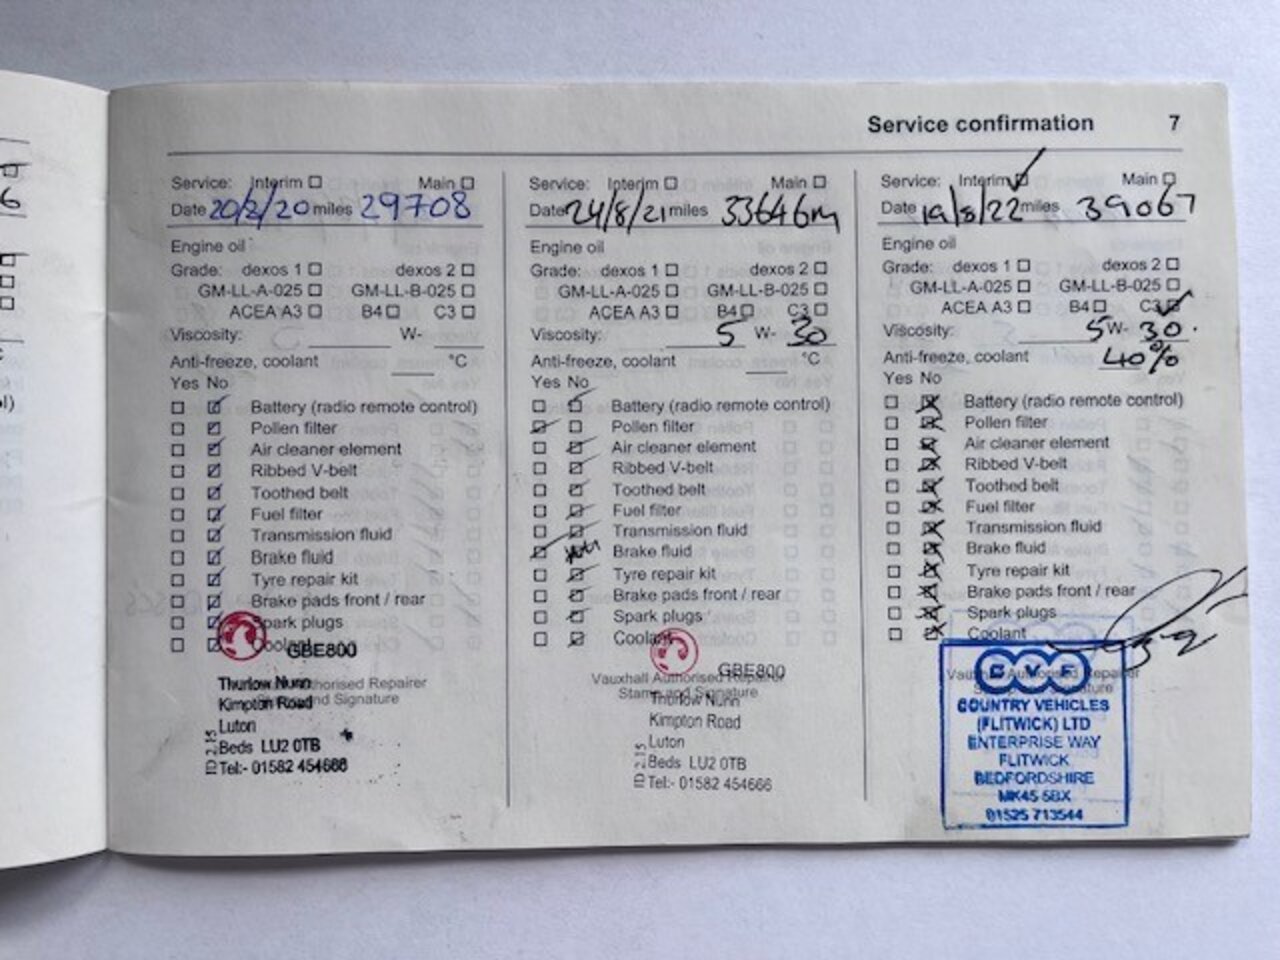 6
Service confirmation 7
Service: Interim Main
Date 20/2/20 miles 29708
Engine oil
Grade: dexos 1 dexos 2
GM-LL-A-025 GM-LL-B-025
ACEA A3 B4 C3
Viscosity: W-
Anti-freeze, coolant °C
Yes No
Battery (radio remote control)
Pollen filter
Air cleaner element
Ribbed V-belt
Toothed belt
Fuel filter
Transmission fluid
Brake fluid
Tyre repair kit
Brake pads front / rear
Spark plugs
Coolant
GBE800
Authorised Repairer
Stamp and Signature
Thurlow Nunn
Kimpton Road
Luton
Beds LU2 0TB
Tel:- 01582 454666
Service: Interim Main
Date 24/8/21 miles 33646m
Engine oil
Grade: dexos 1 dexos 2
GM-LL-A-025 GM-LL-B-025
ACEA A3 B4 C3
Viscosity: 5 W- 30
Anti-freeze, coolant °C
Yes No
Battery (radio remote control)
Pollen filter
Air cleaner element
Ribbed V-belt
Toothed belt
Fuel filter
Transmission fluid
Brake fluid
Tyre repair kit
Brake pads front / rear
Spark plugs
Coolant
GBE800
Vauxhall Authorised Repairer
Stamp and Signature
Thurlow Nunn
Kimpton Road
Luton
Beds LU2 0TB
Tel:- 01582 454666
Service: Interim Main
Date 19/8/22 miles 39067
Engine oil
Grade: dexos 1 dexos 2
GM-LL-A-025 GM-LL-B-025
ACEA A3 B4 C3
Viscosity: 5 W- 30.
Anti-freeze, coolant 40%
Yes No
Battery (radio remote control)
Pollen filter
Air cleaner element
Ribbed V-belt
Toothed belt
Fuel filter
Transmission fluid
Brake fluid
Tyre repair kit
Brake pads front / rear
Spark plugs
Coolant
Vauxhall Authorised Repairer
CVF
COUNTRY VEHICLES
(FLITWICK) LTD
ENTERPRISE WAY
FLITWICK
BEDFORDSHIRE
MK45 5BX
01525 713544